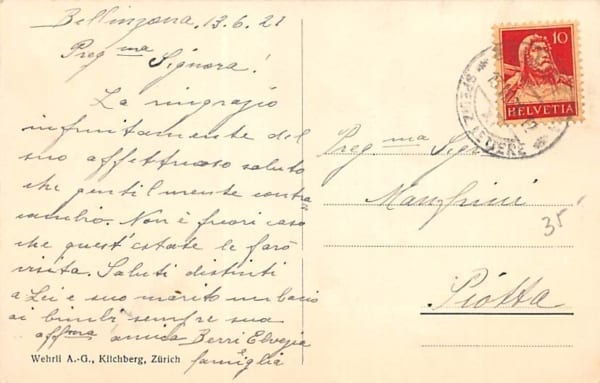 Bellinzona, 13.6.21
Preg ma Signora!
La ringrazio
infinitamente del
suo affettuoso saluto
che gentilmente contra
cambio. Non è fuori caso
che quest'estate le farò
visita. Saluti distinti
a Lei e suo marito un bacio
ai bimbi sempre sua
aff.ma amica Berri Elvezia
famiglia
Wehrli A.-G., Kilchberg, Zürich
10
HELVETIA
LETTERE
Preg ma Sig
Manfrini
35
Piotta